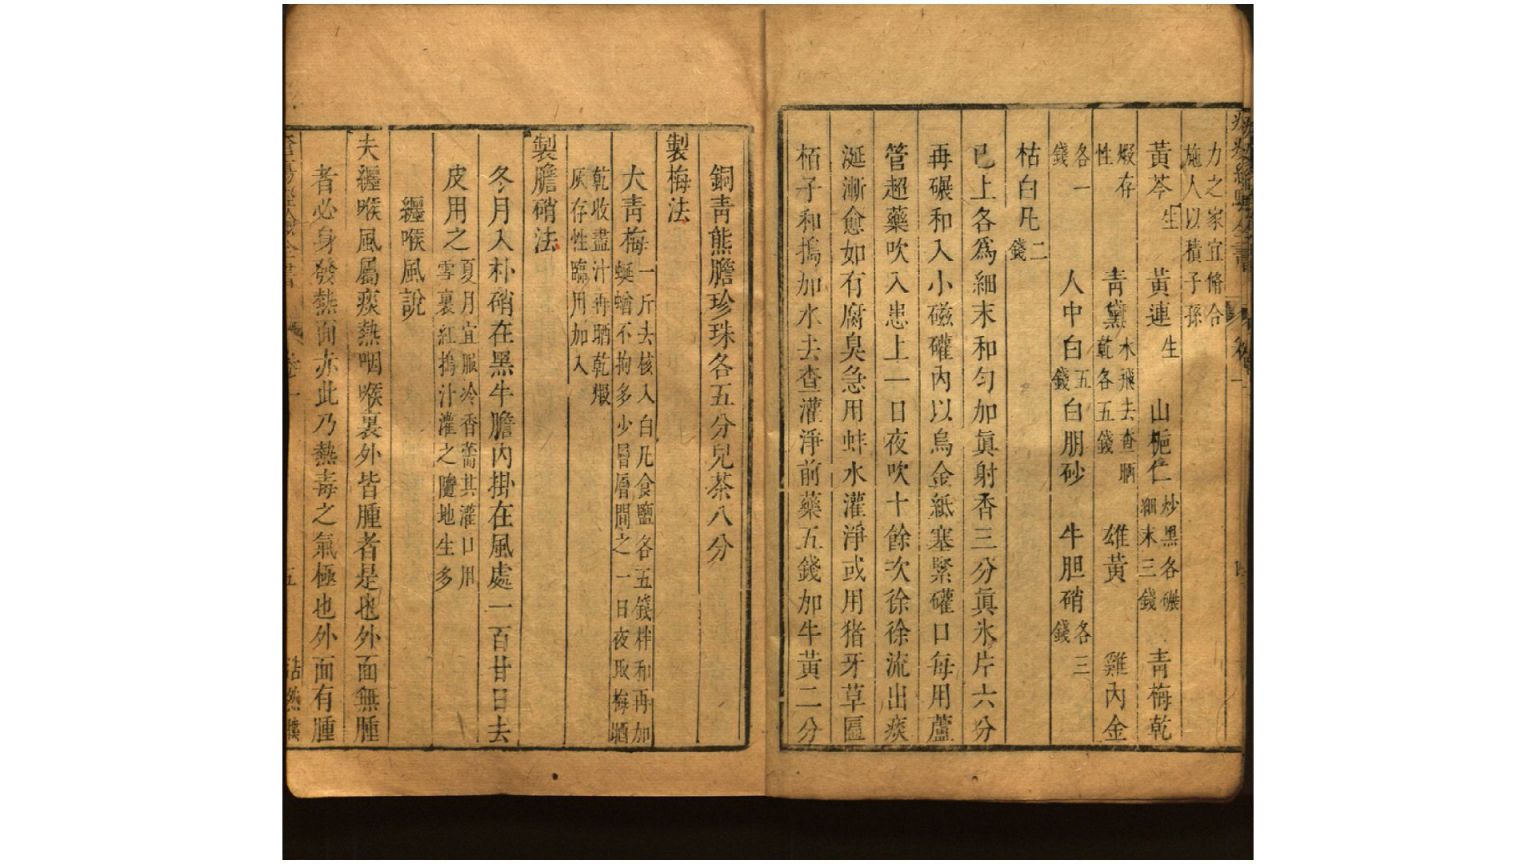 力之家宜脩合
施人以積子孫
黃芩生　黃連生　山梔仁炒黑各碾細末三錢　青梅乾
煅存性　青黛水飛去查晒乾各五錢　雄黃　雞內金
各一錢　人中白五錢　白朋砂　牛胆硝各三錢
枯白凡二錢
已上各為細末和勻加真射香三分真氷片六分
再碾和入小磁礶內以烏金紙塞緊礶口每用蘆
管超藥吹入患上一日夜吹十餘次徐徐流出痰
涎漸愈如有腐臭急用蚌水灌淨或用猪牙草匾
栢子和搗加水去查灌淨前藥五錢加牛黃二分
銅青熊膽珍珠各五分兒茶八分
製梅法
大青梅一斤去核入白凡食鹽各五錢拌和再加
蜒蝣不拘多少層層間之一日夜取梅晒
乾收盡汁再晒乾煅
灰存性臨用加入
製膽硝法
冬月入朴硝在黑牛膽內掛在風處一百廿日去
皮用之夏月宜服冷香薷其灌口用
雪裏紅搗汁灌之隨地生多
纏喉風說
夫纏喉風屬痰熱咽喉裏外皆腫者是也外面無腫
者必身發熱面亦此乃熱毒之氣極也外面有腫